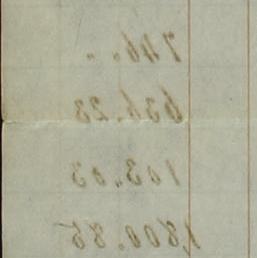 746. "
634.23
103.03
1,800.85